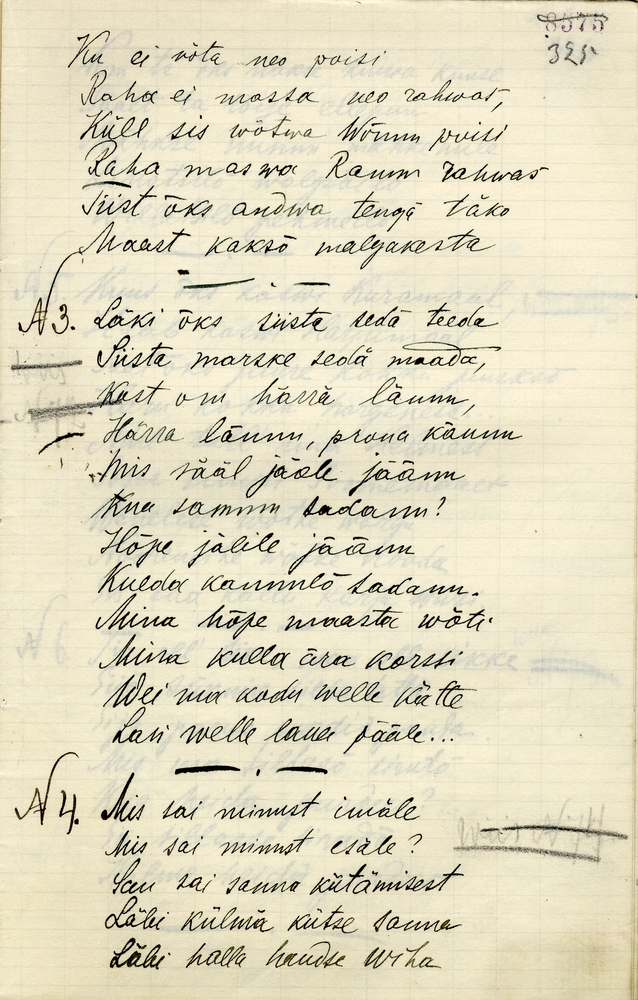 8575
325
Ku ei võta neo poisi
Raha ei massa neo rahwas,
Küll sis wõtwa Wõnnu poisi
Raha maswa Rannu rahwas
Siist õks andwa tengä täko
Maast kaksõ malgakesta
N 3. Läki õks siista sedä teeda
Siista marske sedä maada,
Kost om härrä lännu,
Härra lännu, proua käünu
Mis sääl jäole jäänu
Kua sammu sadanu?
Hõpe jälile jäänu
Kulda kannulõ sadanu.
Mina hõpe maasta wõti
Mina kulla ära korssi
Wei ma kodu welle kätte
Lasi welle laua pääle...
N 4. Mis sai minust imäle
Mis sai minust esäle?
San sai sanna kütämisest
Läbi külmä kütse sanna
Läbi halla haudse wiha